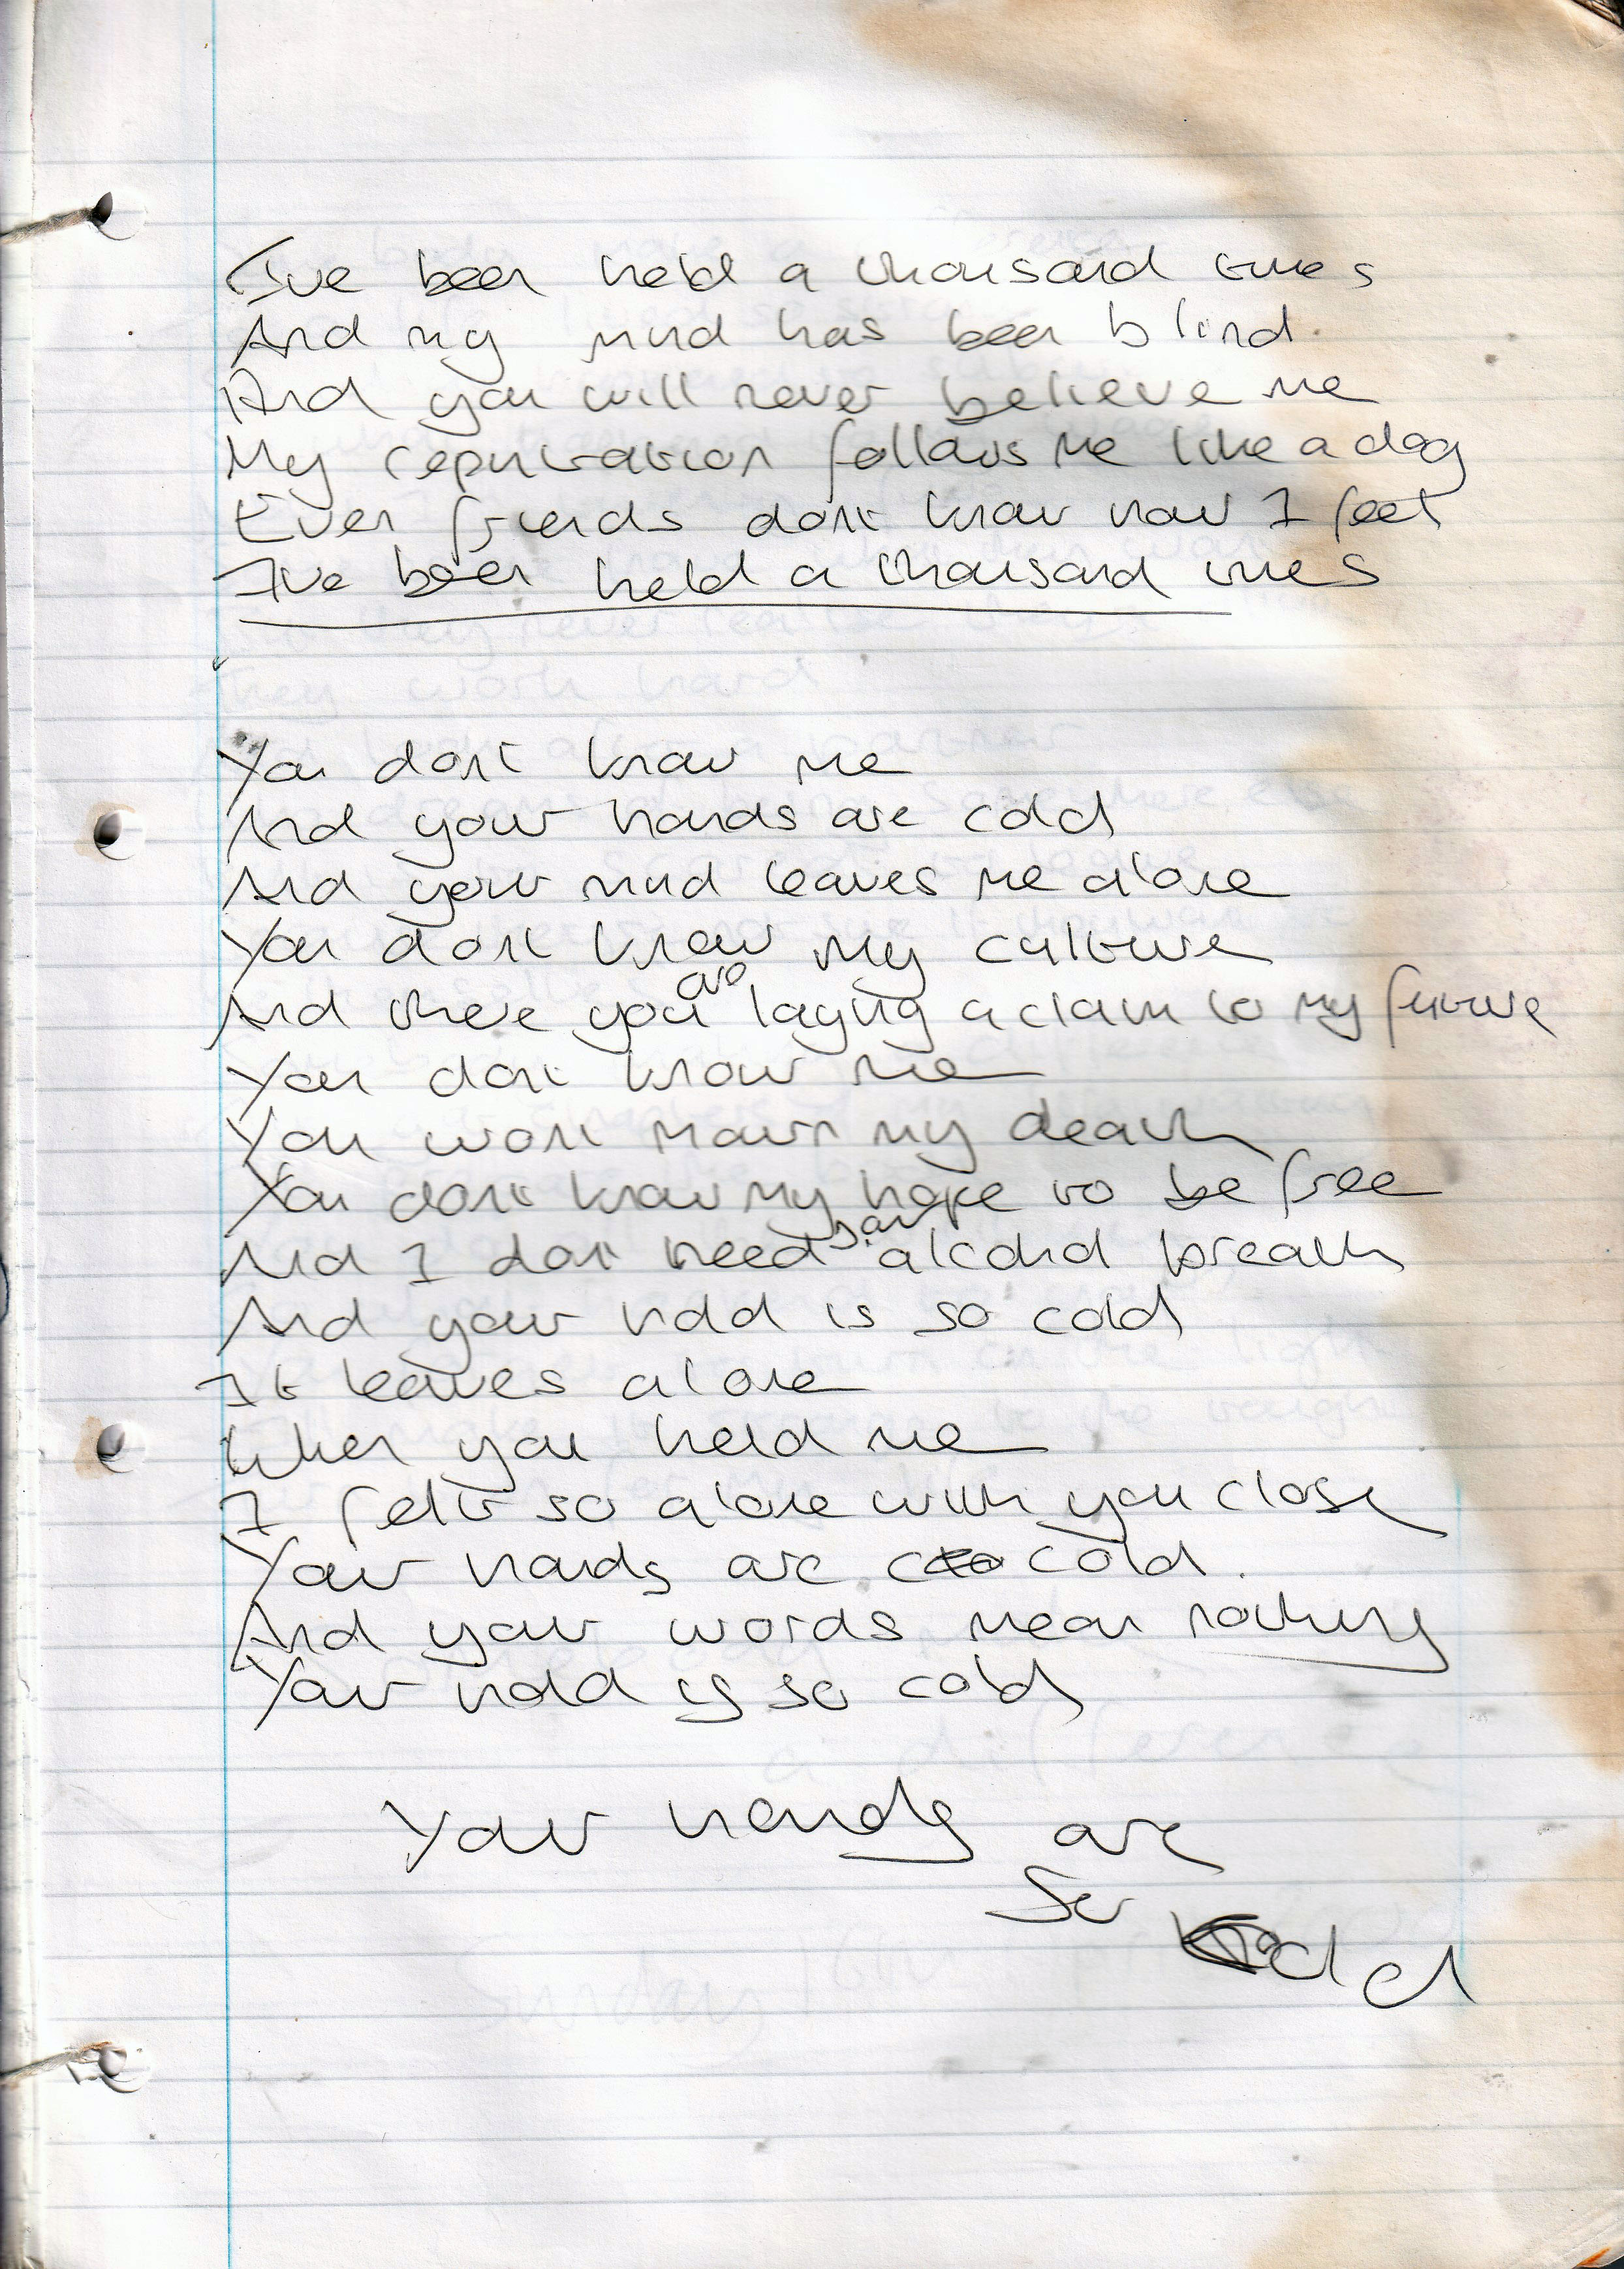 I've been held a thousand times
And my mind has been blind.
And you will never believe me
My reputation follows me like a dog
Even friends dont know how I feel
I've been held a thousand times
You dont know me
And your hands are cold
And your mind leaves me alone
You dont know my culture
And there you are laying a claim to my future
You dont know me
You wont mourn my death
You dont know my hope to be free
And I dont need your alcohol breath
And your hold is so cold
It leaves alone
When you held me
I felt so alone with you close
Your hands are cold.
And your words mean nothing
Your hold is so cold
Your hands are
So cold